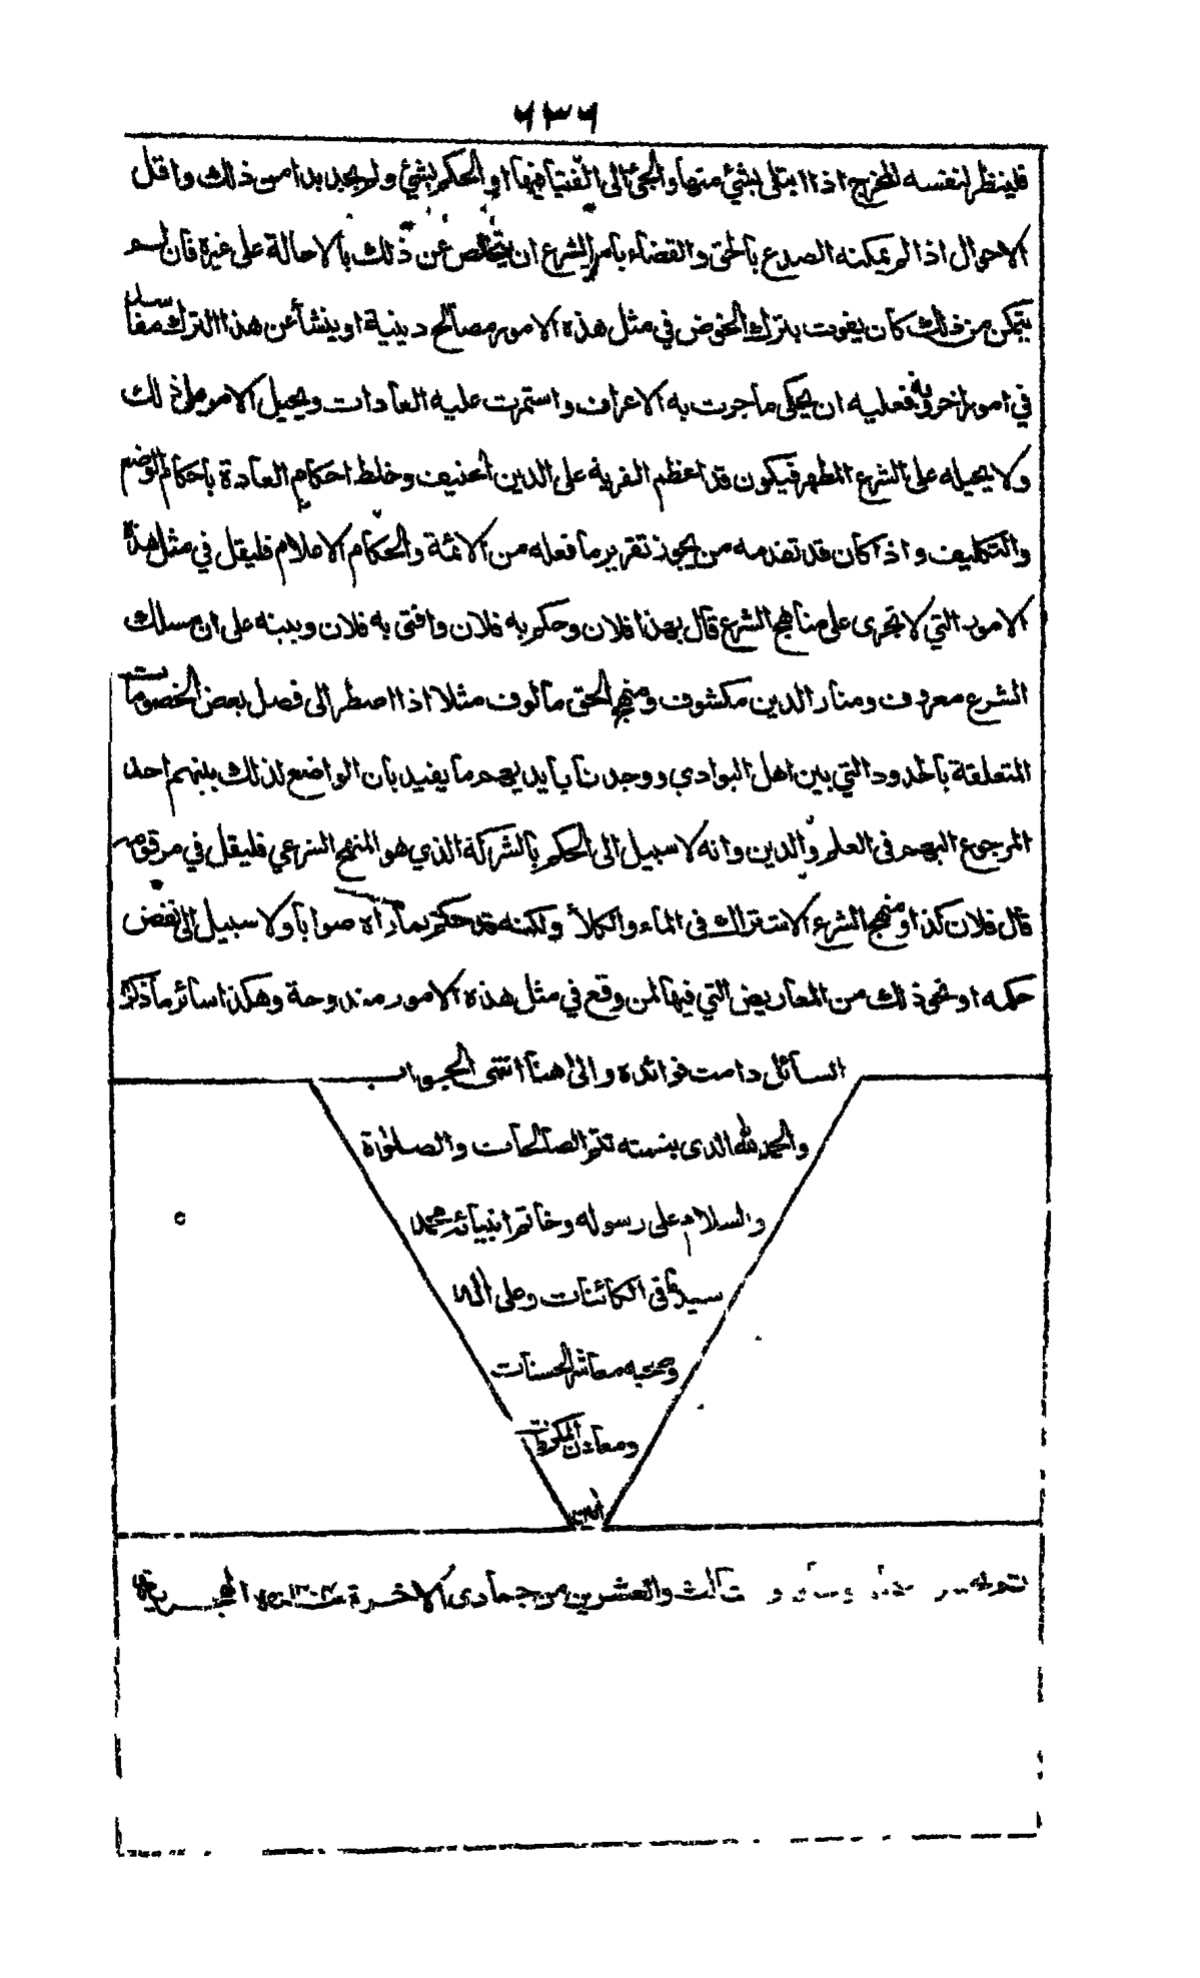 ٦٣٦
فلينظر لنفسه المخرج اذا ابتلى بشئ منها والجئ الى الفتيا فيها او الحكم بشئ ولم يجد بدا من ذلك واقل
الاحوال اذا لم يمكنه الصدع بالحق والقضاء بامر الشرع ان يتخلص عن ذلك بالاحالة على غيره فان لم
يتمكن من ذلك كان يفوت بترك الخوض في مثل هذه الامور مصالح دينية او ينشأ عن هذا الترك مفاسد
في امور اخروية فعليه ان يحكى ماجرت به الاعراف واستمرت عليه العادات ويحيل الامور على ذلك
ولا يحيله على الشرع المطهر فيكون قد اعظم الفرية على الدين الحنيف وخلط احكام العادة باحكام الوضع
والتكليف واذا كان قد تقدمه من يجوز تقرير ما فعله من الائمة والحكام الاعلام فليقل في مثل هذه
الامور التي لا تجرى على مناهج الشرع قال بهذا فلان وحكم به فلان وافتى به فلان ويبنه على ان مسلك
الشرع معروف ومنار الدين مكشوف ومنهج الحق مألوف مثلا اذا اضطر الى فصل بعض الخصومات
المتعلقة بالحدود التي بين اهل البوادي ووجدنا بايديهم ما يفيد بان الواضع لذلك بينهم احد
المرجوع اليهم فى العلم والدين وانه لا سبيل الى الحكم بالشركة الذي هو المنهج الشرعي فليقل في مرقومه
قال فلان كذا ومنهج الشرع الاشتراك فى الماء والكلأ ولكنه قد حكم بما رآه صوابا ولا سبيل الى نقض
حكمه او نحو ذلك من المعاريض التي فيها لمن وقع في مثل هذه الامور مندوحة وهكذا سائر ما ذكره
السائل دامت فوائده والى هنا انتهى الجواب
والحمد لله الذى بنعمته تتم الصالحات والصلوة
والسلام على رسوله وخاتم انبيائه محمد
سيد الكائنات وعلى اله
وصحبه معاشر الحسنات
ومعادن المكرمات
امين
ثالث والعشرين من جمادى الاخرة الهجرية